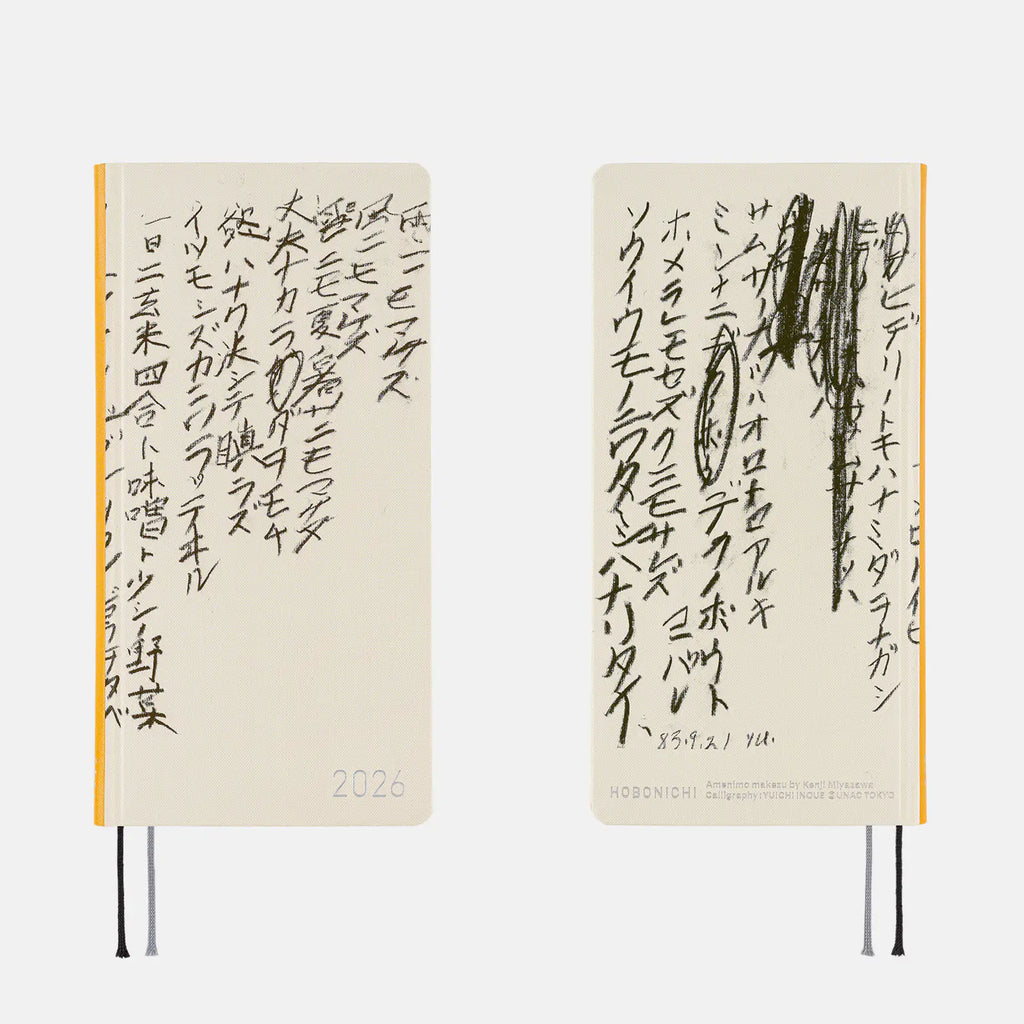 雨ニモマケズ
風ニモマケズ
雪ニモ夏ノ暑サニモマケヌ
丈夫ナカラダヲモチ
慾ハナク決シテ瞋ラズ
イツモシズカニワラッテヰル
一日ニ玄米四合ト味噌ト少シノ野菜
タベ
2026
ヒデリノトキハナミダヲナガシ
サムサノナツハオロオロアルキ
ミンナニデクノボウト
ヨバレ
ホメラレモセズクニモサレズ
ソウイウモノニワタシハナリタイ
83.9.21 yu.
HOBONICHI
Amenimo makezu by Kenji Miyazawa
Calligraphy:YUICHI INOUE ©UNAC TOKYO